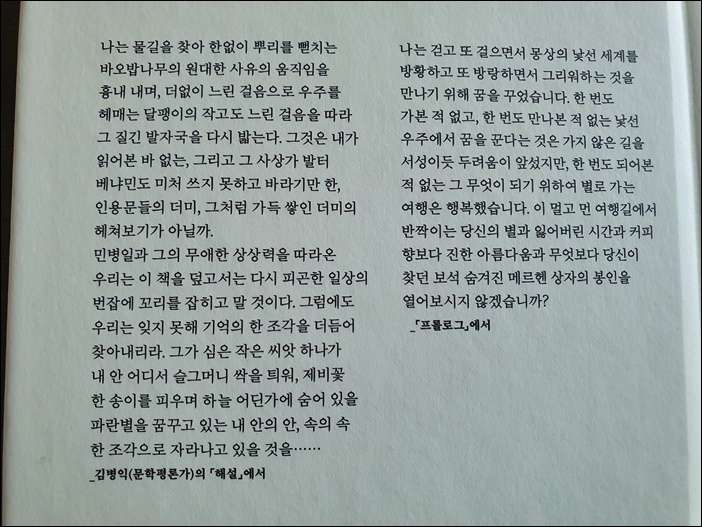 나는 물길을 찾아 한없이 뿌리를 뻗치는
바오밥나무의 원대한 사유의 움직임을
흉내 내며, 더없이 느린 걸음으로 우주를
헤매는 달팽이의 작고도 느린 걸음을 따라
그 질긴 발자국을 다시 밟는다. 그것은 내가
읽어본 바 없는, 그리고 그 사상가 발터
베냐민도 미처 쓰지 못하고 바라기만 한,
인용문들의 더미, 그처럼 가득 쌓인 더미의
헤쳐보기가 아닐까.
민병일과 그의 무애한 상상력을 따라온
우리는 이 책을 덮고서는 다시 피곤한 일상의
번잡에 꼬리를 잡히고 말 것이다. 그럼에도
우리는 잊지 못해 기억의 한 조각을 더듬어
찾아내리라. 그가 심은 작은 씨앗 하나가
내 안 어디서 슬그머니 싹을 틔워, 제비꽃
한 송이를 피우며 하늘 어딘가에 숨어 있을
파란별을 꿈꾸고 있는 내 안의 안, 속의 속
한 조각으로 자라나고 있을 것을……
_김병익(문학평론가)의 「해설」에서
나는 걷고 또 걸으면서 몽상의 낯선 세계를
방황하고 또 방랑하면서 그리워하는 것을
만나기 위해 꿈을 꾸었습니다. 한 번도
가본 적 없고, 한 번도 만나본 적 없는 낯선
우주에서 꿈을 꾼다는 것은 가지 않은 길을
서성이듯 두려움이 앞섰지만, 한 번도 되어본
적 없는 그 무엇이 되기 위하여 별로 가는
여행은 행복했습니다. 이 멀고 먼 여행길에서
반짝이는 당신의 별과 잃어버린 시간과 커피
향보다 진한 아름다움과 무엇보다 당신이
찾던 보석 숨겨진 메르헨 상자의 봉인을
열어보시지 않겠습니까?
_「프롤로그」에서